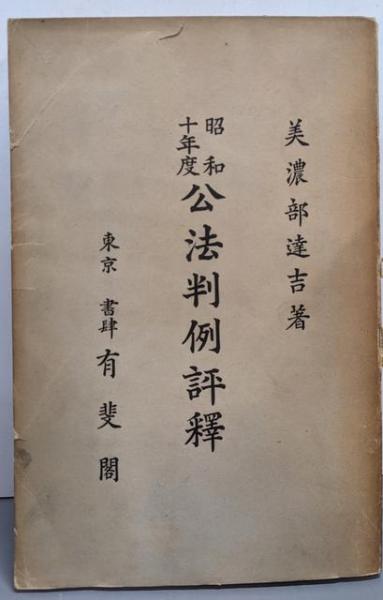 美濃部達吉著
昭和十年度 公法判例評釋
東京 書肆 有斐閣